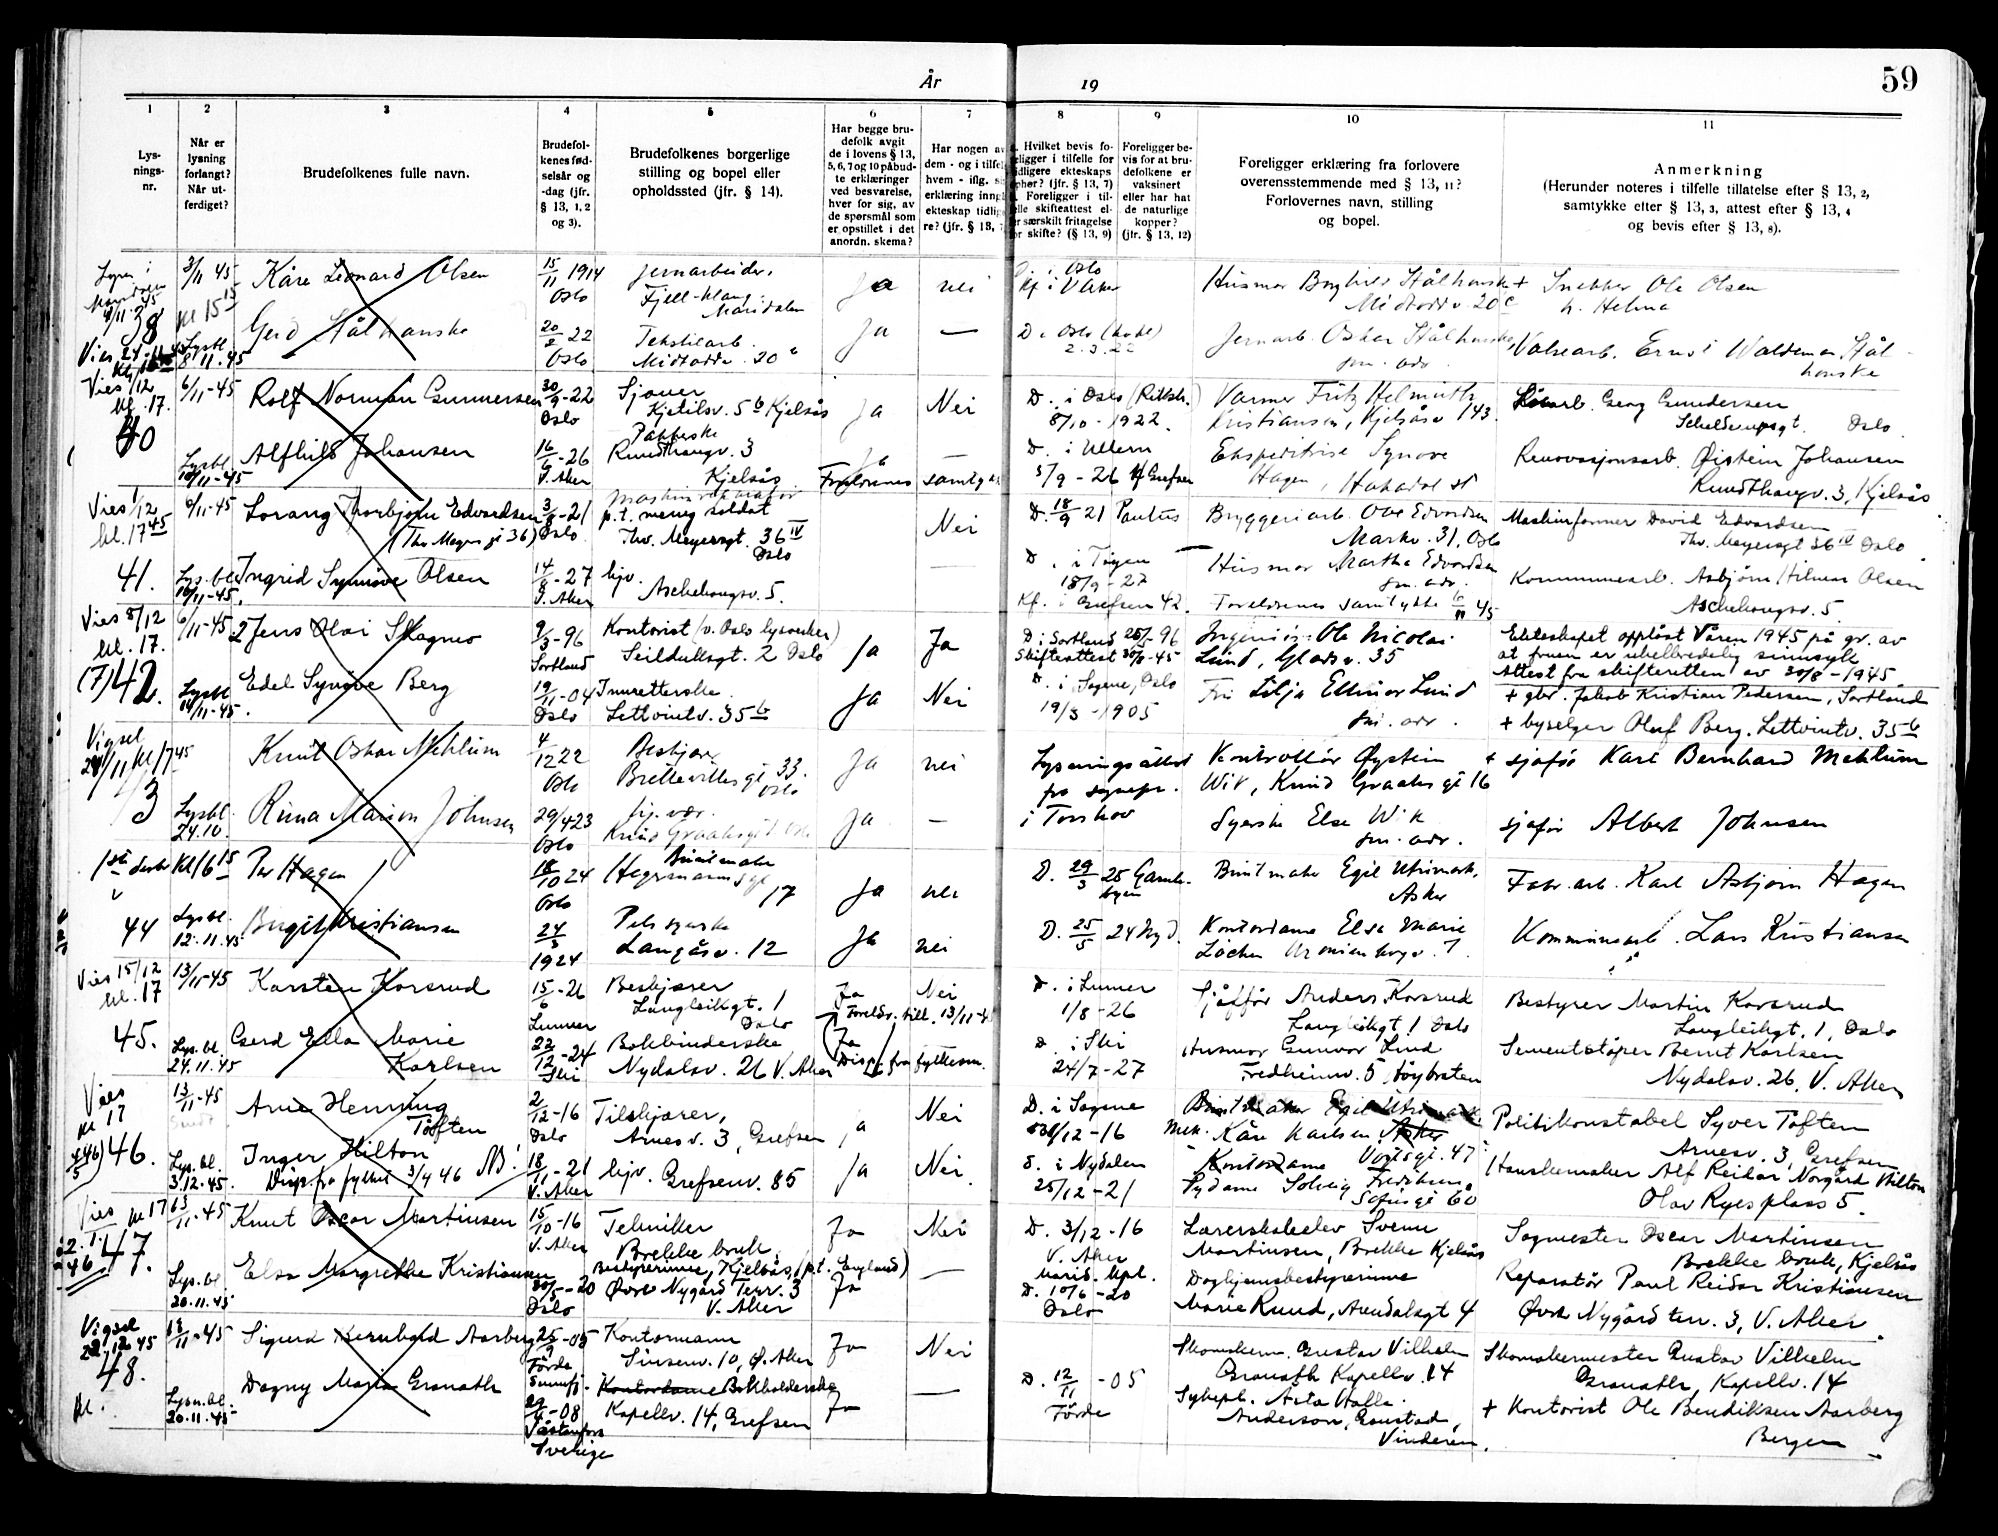 59
År 19
1
Lys-
nings-
nr.
2
Når er
lysning
forlangt?
Når ut-
ferdiget?
3
Brudefolkenes fulle navn.
4
Brudefol-
kenes fød-
selsår og
-dag (jfr.
§ 13, 1, 2
og 3).
5
Brudefolkenes borgerlige
stilling og bopel eller
opholdssted (jfr. § 14).
6
Har begge bru-
defolk avgit
de i lovens § 13,
5, 6, 7 og 10 påbud-
te erklæringer
ved besvarelse,
hver for sig, av
de spørsmål som
er opstillet i det
anordn. skema?
7
Har nogen av
dem - og i tilfel
hvem - iflg.
erklæring inng
ekteskap tidlig
re? (jfr. § 13,
8
Hvilket bevis fo-
religger i tilfelle for
tidligere ekteskaps
ophør? (jfr. § 13, 7)
Foreligger i til-
felle skifteattest el-
er særskilt fritagelse
for skifte? (§ 13, 9)
9
Foreligger be-
vis for at bru-
defolkene er
vaksinert
eller har hat
de naturlige
kopper?
(jfr. § 13, 12)
10
Foreligger erklæring fra forlovere
overensstemmende med § 13, 11?
Forlovernes navn, stilling
og bopel.
11
Anmerkning
(Herunder noteres i tilfelle tillatelse efter § 13, 2,
samtykke efter § 13, 3, attest efter § 13, 4
og bevis efter § 13, 8).
38
3/11 45
kl 15 15
Kåre Leonard Olsen
15/11 1914
Oslo
Jernarbeider.
Maridalen
Ja
nei
i Oslo
Husmor
Stålhanske
Midtodd v. 20 c
+ Snekker Ole Olsen
Lysbl
8/11-45
Gerd Stålhanske
20/2 22
Oslo
Tekstilarb.
Midtodd v. 20 c
Ja
—
D. i Oslo
2.3.22
Jernarb. Oskar Stålhanske,
sm. adr.
Valsearb. Ernst Waldemar Stål-
hanske
Vies 1/12
kl. 17.
40
6/11-45
Rolf Norman Gunnersen
30/9-22
Oslo
Sjauer
Kjetilsv. 5 b Kjelsås
Ja
Nei
D. i Oslo (Rikksh.)
8/10-1922.
Varmer Fritz Helmuth
Kristiansen, Kjelsåsv 143.
Georg Gundersen
Oslo
Lysbl.
10/11-45
Alfhild Johansen
16/6-26
V. Aker
Pakkerske
Rundthaugv. 3
Kjelsås
Ja
Foreldrenes samtykke
D. i Ullern
5/9-26 Kf Grefsen
Ekspeditrise Synøve
Hagen, Hakadal st
Renovasjonsarb. Øistein Johansen
Rundthaugv. 3, Kjelsås
Vies 1/12
kl. 17 45
41.
6/11-45
Lorang Thorbjørn Edvardsen
(Thv Meyers gt 36)
3/8-21
Oslo
Maskinreparatør
p.t. menig soldat
Thv. Meyersgt. 36 IV
Oslo
Nei
D. 18/9 21 Paulus
Bryggeriarb. Ove Edvardsen
Markv. 31, Oslo
Maskinformer David Edvardsen
Thv. Meyersgt 36 IV Oslo
Lys.bl.
10/11-45.
Ingrid Synnøve Olsen
14/8-27
hjv.
Aschehougsv. 5.
—
D. i Tøyen
18/9-27
Kf. i Grefsen 42.
Husmor Martha Edvardsen
sm. adr.
Foreldrenes samtykke 6/11 45
Kommunearb. Asbjørn Hilmar Olsen
Aschehougsv. 5
Vies 8/12
kl. 17.
(7) 42.
6/11-45
Jens Olai Skagmo
9/3-96
Sortland
Kontorist (v. Oslo lysverker)
Seilduksgt. 2 Oslo
Ja
Ja
D. i Sortland 25/5-96
Skifteattest 30/8-45
Ingeniør Ole Nicolai
Lund, Gladsv. 35
Ekteskapet oppløst Våren 1945 på gr. av
at fruen er uhelbredelig sinnssyk
Attest fra skifteretten av 30/8-1945.
Lysbl
14/11-45.
Edel Synøve Berg
19/11-04
Oslo
Innretterske
Lettvintv. 35 b
Ja
Nei
D. i Sagene, Oslo
19/3-1905
Fru Lilja Ellinor Lund
sm. adr.
+ gbr. Jakob Kristian Pedersen, Sortland
+ byselger Oluf Berg, Lettvintv. 35 b
Vigsel
24/11 kl 17 45
43
Knut Oskar Mehlum
4/12 22
Oslo
Brettevilles gt 33.
Oslo
Ja
nei
Lysningsattest
fra sognepr.
i Torshov
Kontrollør Øystein
Wik, Knud Graahs gt 16
+ sjåfør Karl Bernhard Mehlum
Lysbl.
24.10.
Runa Marion Johnsen
29/4 23
Oslo
hj. vær.
Knud Graahsgt Oslo
Ja
—
Syerske Else Wik
sm. adr.
sjåfør Albert Johnsen
kl 16 15
44
Per Hagen
18/10 24
Oslo
Buntmaker
Hegermanns gt
17
Ja
nei
D. 29/3 25 Gamle-
byen
Buntmaker Egil Utrimark,
Asker
Fabr. arb. Karl Asbjørn Hagen
Lysbl.
12.11.45
Birgit Kristiansen
24/3
1924
Pelssyerske
Langåsv. 12
Ja
nei
D. 25/5 24 Nyd.
Kontordame Else Marie
Løcken
Kommunearb. Lars Kristiansen
Vies 15/12
kl. 17
45.
13/11-45
Karsten Korsrud
15/6-26
Lunner
Beskjærer
Langleikgt. 1
Oslo
Ja
Nei
Foreldr. till. 13/11-45
D. i Lunner
1/8-26
Sjåfør Anders Korsrud
Langleikgt 1 Oslo
Bestyrer Martin Korsrud
Langleikgt. 1, Oslo
Lys.bl.
24.11.45
Gerd Ella Marie
Karlsen
22/12-24
Ski
Bokbinderske
Nydalsv. 26 V. Aker
Ja
Disp. fra fylkesm.
D. i Ski
24/7-27
Husmor Gunvor Lind
Fredheimv. 5 Høybråten
Sementstøper Bernt Karlsen
Nydalsv. 26, V. Aker
Vies
kl 17
46.
13/11-45
Arne Henning
Tøften
2/12-16
Oslo
Tilskjærer,
Arnesv. 3, Grefsen
Ja
Nei
D. i Sagene
31/12-16
Buntmaker Egil Utrimark
Mek. Kåre Karlsen Asker
Vogtsgt. 47
Politikonstabel Syver Tøften
Arnesv. 3, Grefsen
Lys.bl.
3.12.45.
Inger Hilton
Disp. fra fylket 3/4 46 NB!
18/11-21
V. Aker
hjv. Grefsenv. 85
Ja
Nei
D. i Nydalen
25/12-21
Kontordame
Sydame Solveig Fredriksen
Sofiesgt 60
Hanskemaker Alf Reidar Norgård Hilton
Olav Ryes plass 5.
Vies kl 17
47.
13/11-45
Knut Oscar Martinsen
15/10-16
V. Aker
Tekniker
Brekke bruk,
Kjelsås, (p.t. England)
Ja
Nei
D. 3/12-16
V. Aker
Lærerskoleelev Svenn
Martinsen, Brekke Kjelsås
Sagmester Oscar Martinsen
Brekke bruk, Kjelsås
Lys.bl
20.11.45
Elsa Margrethe Kristiansen
30/5-20
Oslo
Bestyrerinne,
Øvre Nygård Terr. 3
V. Aker
Ja
—
Marid. kpl.
D. 10/6-20
Oslo
Daghjemsbestyrerinne
Marie Ruud, Arendalsgt 4
Reparatør Paul Reidar Kristiansen
Øvre Nygård terr. 3, V. Aker.
Vigsel
22/12 45
48.
kl.
13/11-45
Sigurd Aarberg
25/9-05
Førde
Sunnfj.
Kontormann
Sinsenv. 10, Ø. Aker
Ja
Nei
D. 12/11-05
Førde
Skomakerm. Gustav Vilhelm
Granath Kapellv. 14
Skomakermester Gustav Vilhelm
Granath, Kapellv. 14
Lysn.bl.
20.11.45
Dagny Maria Granath
29/4-08
Sverige
Kontordame Bokholderske
Kapellv. 14, Grefsen
Ja
—
Anderson, Gaustad,
Vinderen.
+ Kontorist Ole Bendiksen Aarberg
Bergen